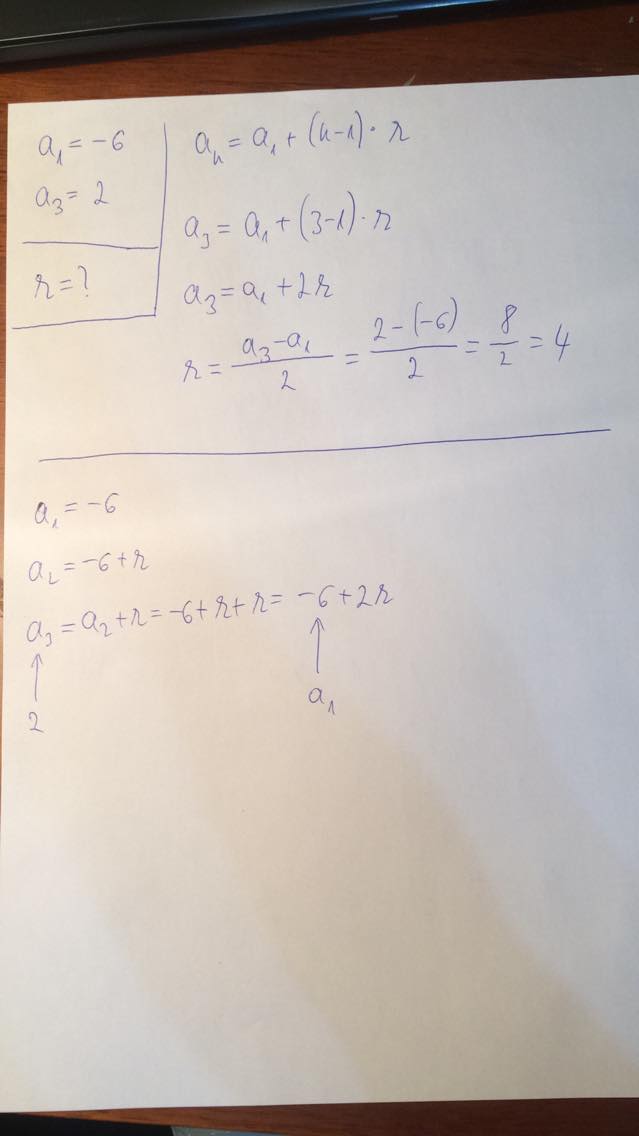 a₁ = -6
a₃ = 2
r = ?
aₙ = a₁ + (n-1) · r
a₃ = a₁ + (3-1) · r
a₃ = a₁ + 2r
r = (a₃ - a₁)/2 = (2 - (-6))/2 = 8/2 = 4
a₁ = -6
a₂ = -6 + r
a₃ = a₂ + r = -6 + r + r = -6 + 2r
↑ ↑
2 a₁